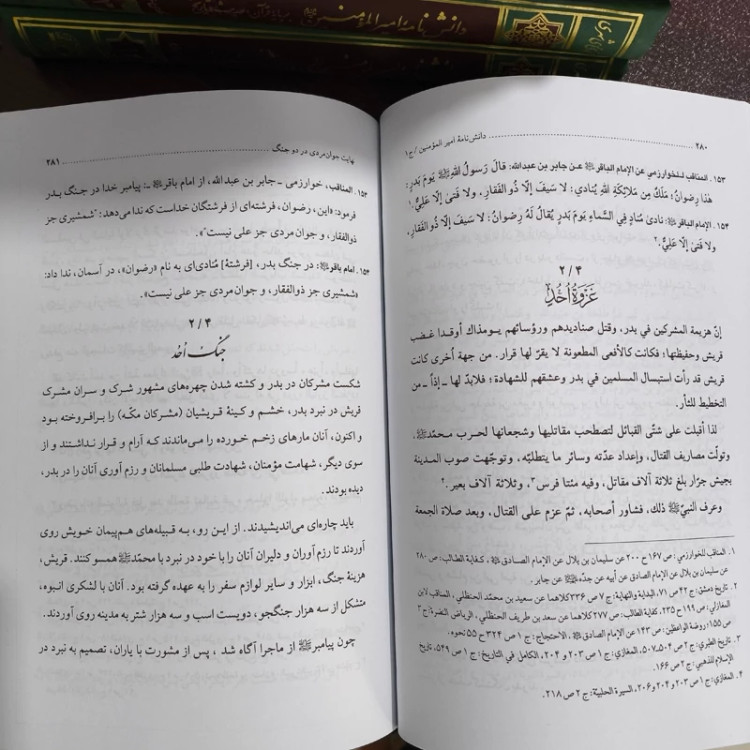 دانش نامه امیرالمؤمنین
۲۸۰
دانش‌نامهٔ امیر المؤمنین / ج ۱
۱۵۳. المناقب للخوارزمي عن الإمام الباقر ﷺ عن جابر بن عبدالله: قالَ رَسولُ اللهِ ﷺ يَومَ بَدرٍ:
هٰذا رِضوانٌ؛ مَلَكٌ مِن مَلائِكَةِ اللهِ يُنادي: لا سَيفَ إلّا ذُو الفَقارِ، ولا فَتىٰ إلّا عَلِيٌّ.۱
۱۵۴. الإمام الباقر ﷺ: نادىٰ مُنادٍ فِي السَّماءِ يَومَ بَدرٍ يُقالُ لَهُ رِضوانُ: لا سَيفَ إلّا ذُو الفَقارِ،
ولا فَتىٰ إلّا عَلِيٌّ.۲
۲ / ۴
غَزوَةُ اُحُدٍ
إنّ هزيمة المشركين في بدر، وقتل صناديدهم ورؤسائهم يومذاك أوقدا غضب
قريش وحفيظتها؛ فكانت كالأفعى المطعونة لا يقرّ لها قرار. من جهة أُخرى كانت
قريش قد رأت استبسال المسلمين في بدر وعشقهم للشهادة؛ فلابدّ لها ــ إذاً ــ من
التخطيط للثأر.
لذا أقبلت على شتّى القبائل لتصطحب مقاتليها وشجعانها لحرب محمّد ﷺ،
وتولّت مصاريف القتال، وإعداد عدّته وسائر ما يتطلّبه، وتوجّهت صوب المدينة
بجيش جرّار بلغ ثلاثة آلاف مقاتل، وفيه مئتا فرس۳، وثلاثة آلاف بعير.۴
وعرف النبيّ ﷺ ذلك، فشاور أصحابه، ثمّ عزم على القتال، وبعد صلاة الجمعة
۱. المناقب للخوارزمي: ص ۱۶۷ ح ۲۰۰ عن سليمان بن بلال عن الإمام الصادق ﷺ، كفاية الطالب: ص ۲۸۰
عن سليمان بن بلال عن الإمام الصادق عن أبيه عن جدّه ﷺ عن جابر.
۲. تاريخ دمشق: ج ۴۲ ص ۷۱، البداية والنهاية: ج ۷ ص ۳۳۶ كلاهما عن سعيد بن محمّد الحنظلي، المناقب لابن
المغازلي: ص ۱۹۹ ح ۲۳۵، كفاية الطالب: ص ۲۷۷ كلاهما عن سعد بن طريف الحنظلي، الرياض النضرة: ج ۳
ص ۱۵۵؛ روضة الواعظين: ص ۱۴۳ عن الإمام الصادق ﷺ، الاحتجاج: ج ۱ ص ۳۲۴ ح ۵۵ نحوه.
۳. تاريخ الطبري: ج ۲ ص ۵۰۴ و ۵۰۷، المغازي: ج ۱ ص ۲۰۳ و ۲۰۴، الكامل في التاريخ: ج ۱ ص ۵۴۹، تاريخ
الإسلام للذهبي: ج ۲ ص ۱۶۶.
۴. المغازي: ج ۱ ص ۲۰۳ و ۲۰۴ و ۲۰۶، السيرة الحلبيّة: ج ۲ ص ۲۱۸.
نهایت جوان‌مردی در دو جنگ
۲۸۱
۱۵۳. المناقب، خوارزمی ـ جابر بن عبدالله، از امام باقر ﷺ ـ: پیامبر خدا در جنگ بدر
فرمود: «این، رضوان، فرشته‌ای از فرشتگان خداست که ندا می‌دهد: "شمشیری جز
ذوالفقار، و جوان مردی جز علی نیست"».
۱۵۴. امام باقر ﷺ: در جنگ بدر، [فرشتهٔ] مُنادی‌ای به نام «رضوان»، در آسمان، ندا داد:
«شمشیری جز ذوالفقار، و جوان‌مردی جز علی نیست».
۲ / ۴
جنگ اُحُد
شکست مشرکان در بدر و کشته شدن چهره‌های مشهور شرک و سران مشرک
قریش در نبرد بدر، خشم و کینهٔ قریشیان (مشرکان مکّه) را برافروخته بود
و اکنون، آنان مارهای زخم خورده را می‌ماندند که آرام و قرار نداشتند و از
سوی دیگر، شهامت مؤمنان، شهادت طلبی مسلمانان و رزم آوری آنان را در بدر،
دیده بودند.
باید چاره‌ای می‌اندیشیدند. از این رو، به قبیله‌های هم‌پیمان خویش روی
آوردند تا رزم آوران و دلیران آنان را با خود در نبرد با محمّد ﷺ همسو کنند. قریش،
هزینهٔ جنگ، ابزار و سایر لوازم سفر را به عهده گرفته بود. آنان با لشکری انبوه،
متشکّل از سه هزار جنگجو، دویست اسب و سه هزار شتر به مدینه روی آوردند.
چون پیامبر ﷺ از ماجرا آگاه شد، پس از مشورت با یاران، تصمیم به نبرد در